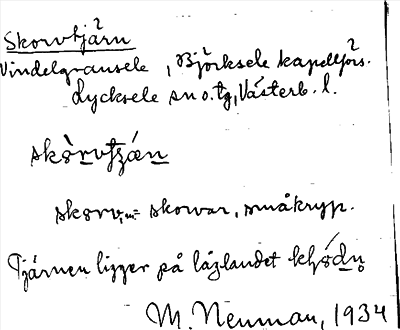 Skorvtjärn
Vindelgransele, Björksele kapellförs.
Lycksele sn o. tg, Västerb. l.
skorvar, småkryp.
Tjärnen ligger på låglandet
M. Neuman, 1934